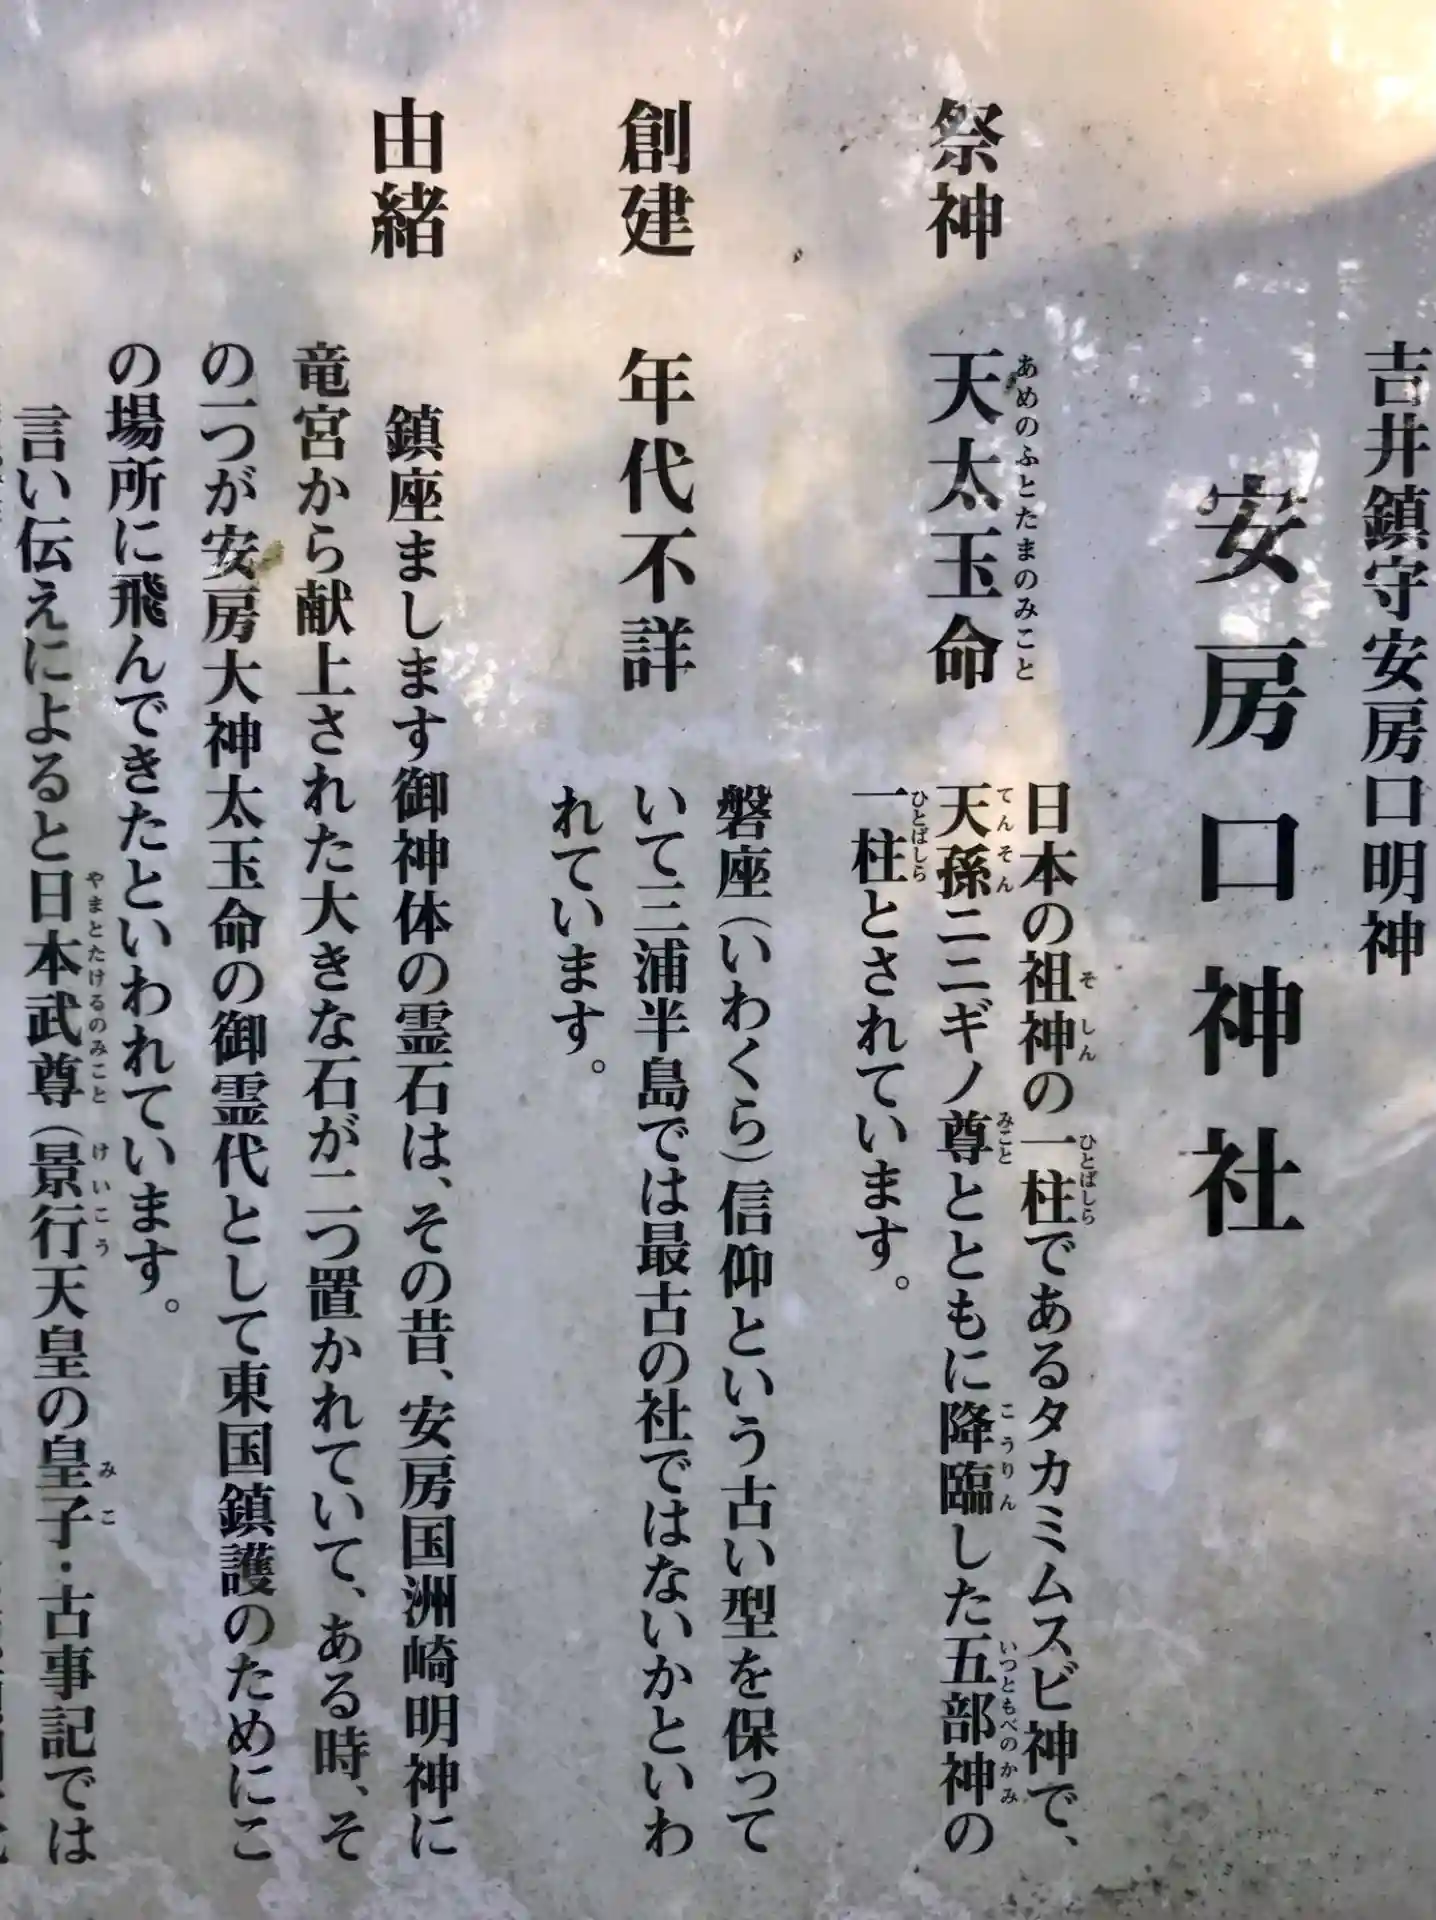 吉井鎮守安房口明神
安房口神社
祭神　天太玉命
あめのふとたまのみこと
日本の祖神の一柱であるタカミムスビ神で、
そしん
ひとばしら
天孫ニニギノ尊とともに降臨した五部神の
てんそん
みこと
こうりん
いつともべのかみ
一柱とされています。
ひとばしら
創建　年代不詳
磐座（いわくら）信仰という古い型を保って
いて三浦半島では最古の社ではないかといわ
れています。
由緒
鎮座まします御神体の霊石は、その昔、安房国洲崎明神に
竜宮から献上された大きな石が二つ置かれていて、ある時、そ
の一つが安房大神太玉命の御霊代として東国鎮護のためにこ
の場所に飛んできたといわれています。
言い伝えによると日本武尊（景行天皇の皇子・古事記では
やまとたけるのみこと
けいこう
みこ